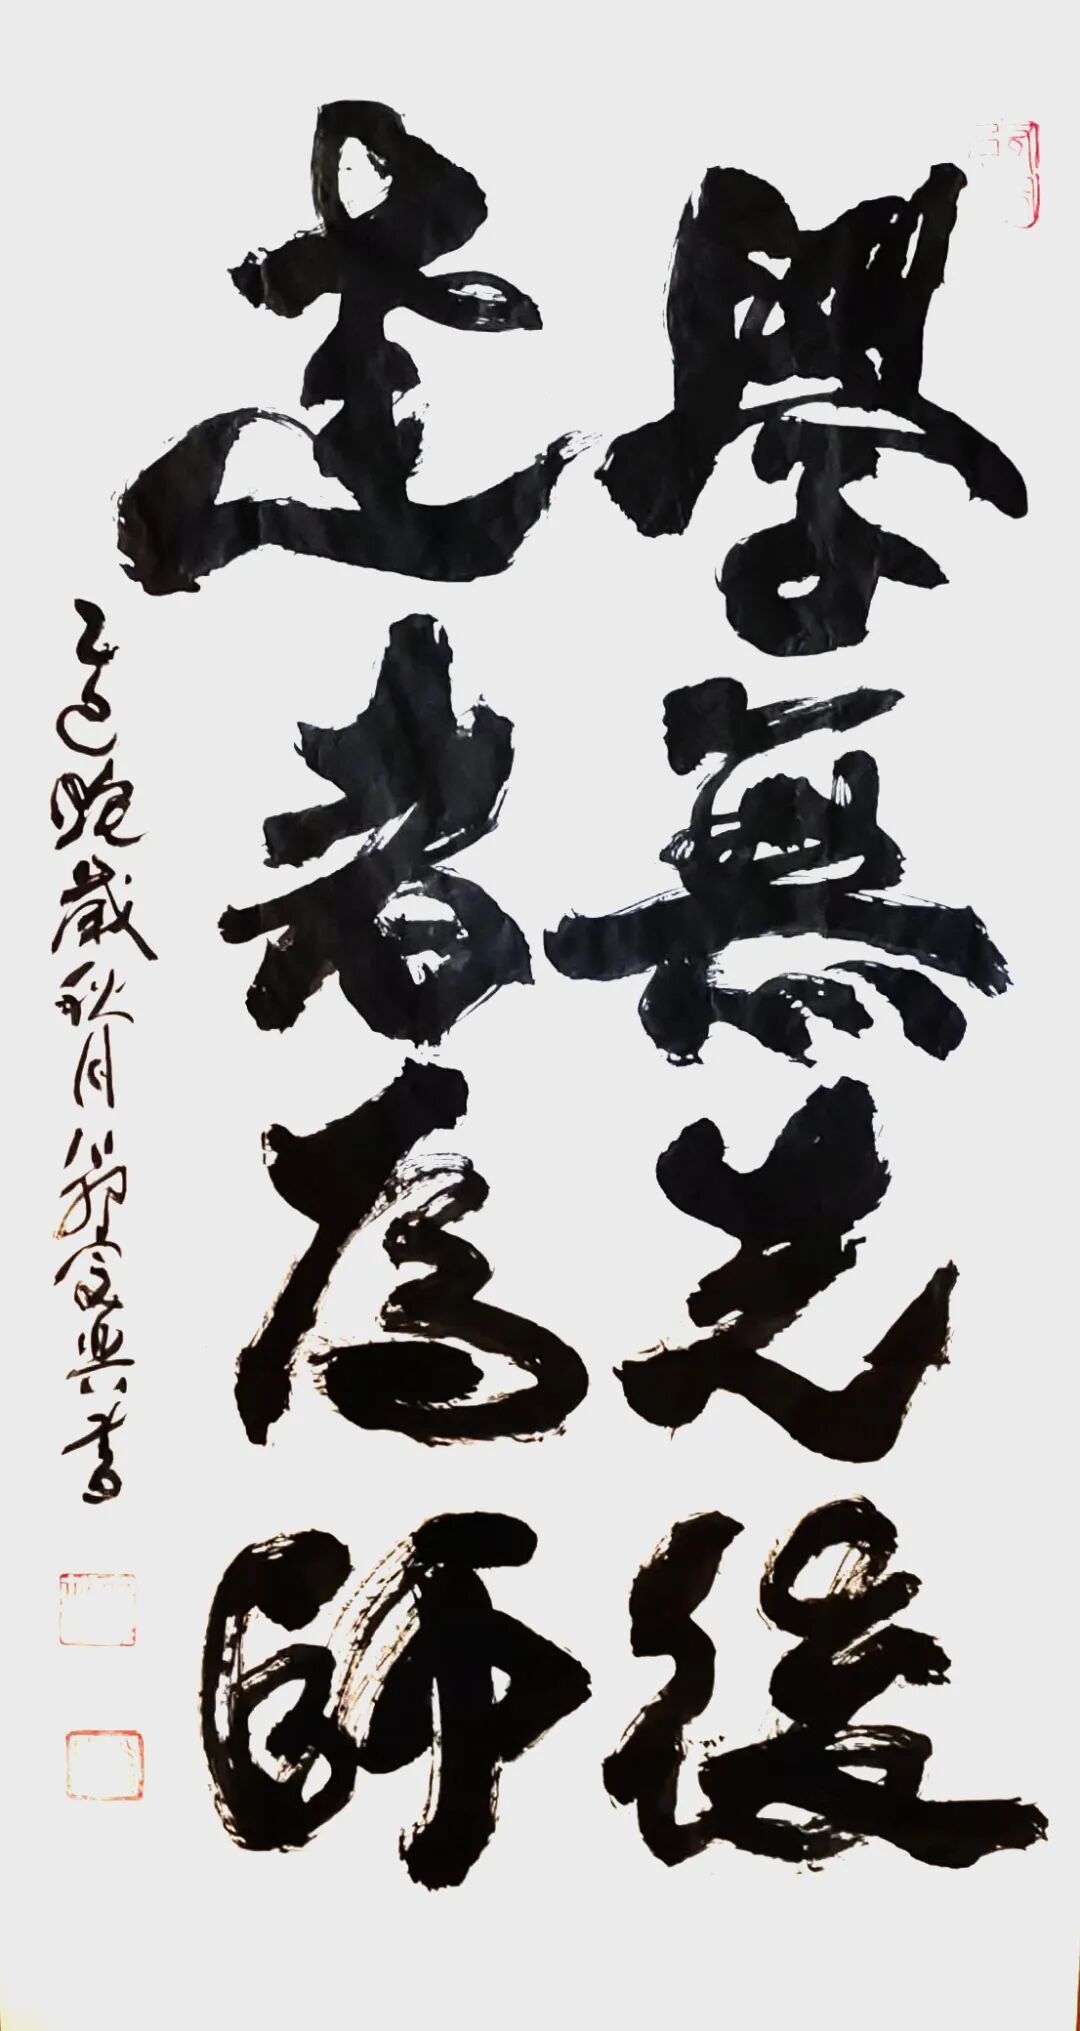 學無先後
達者為師
乙巳晚歲秋月 興書